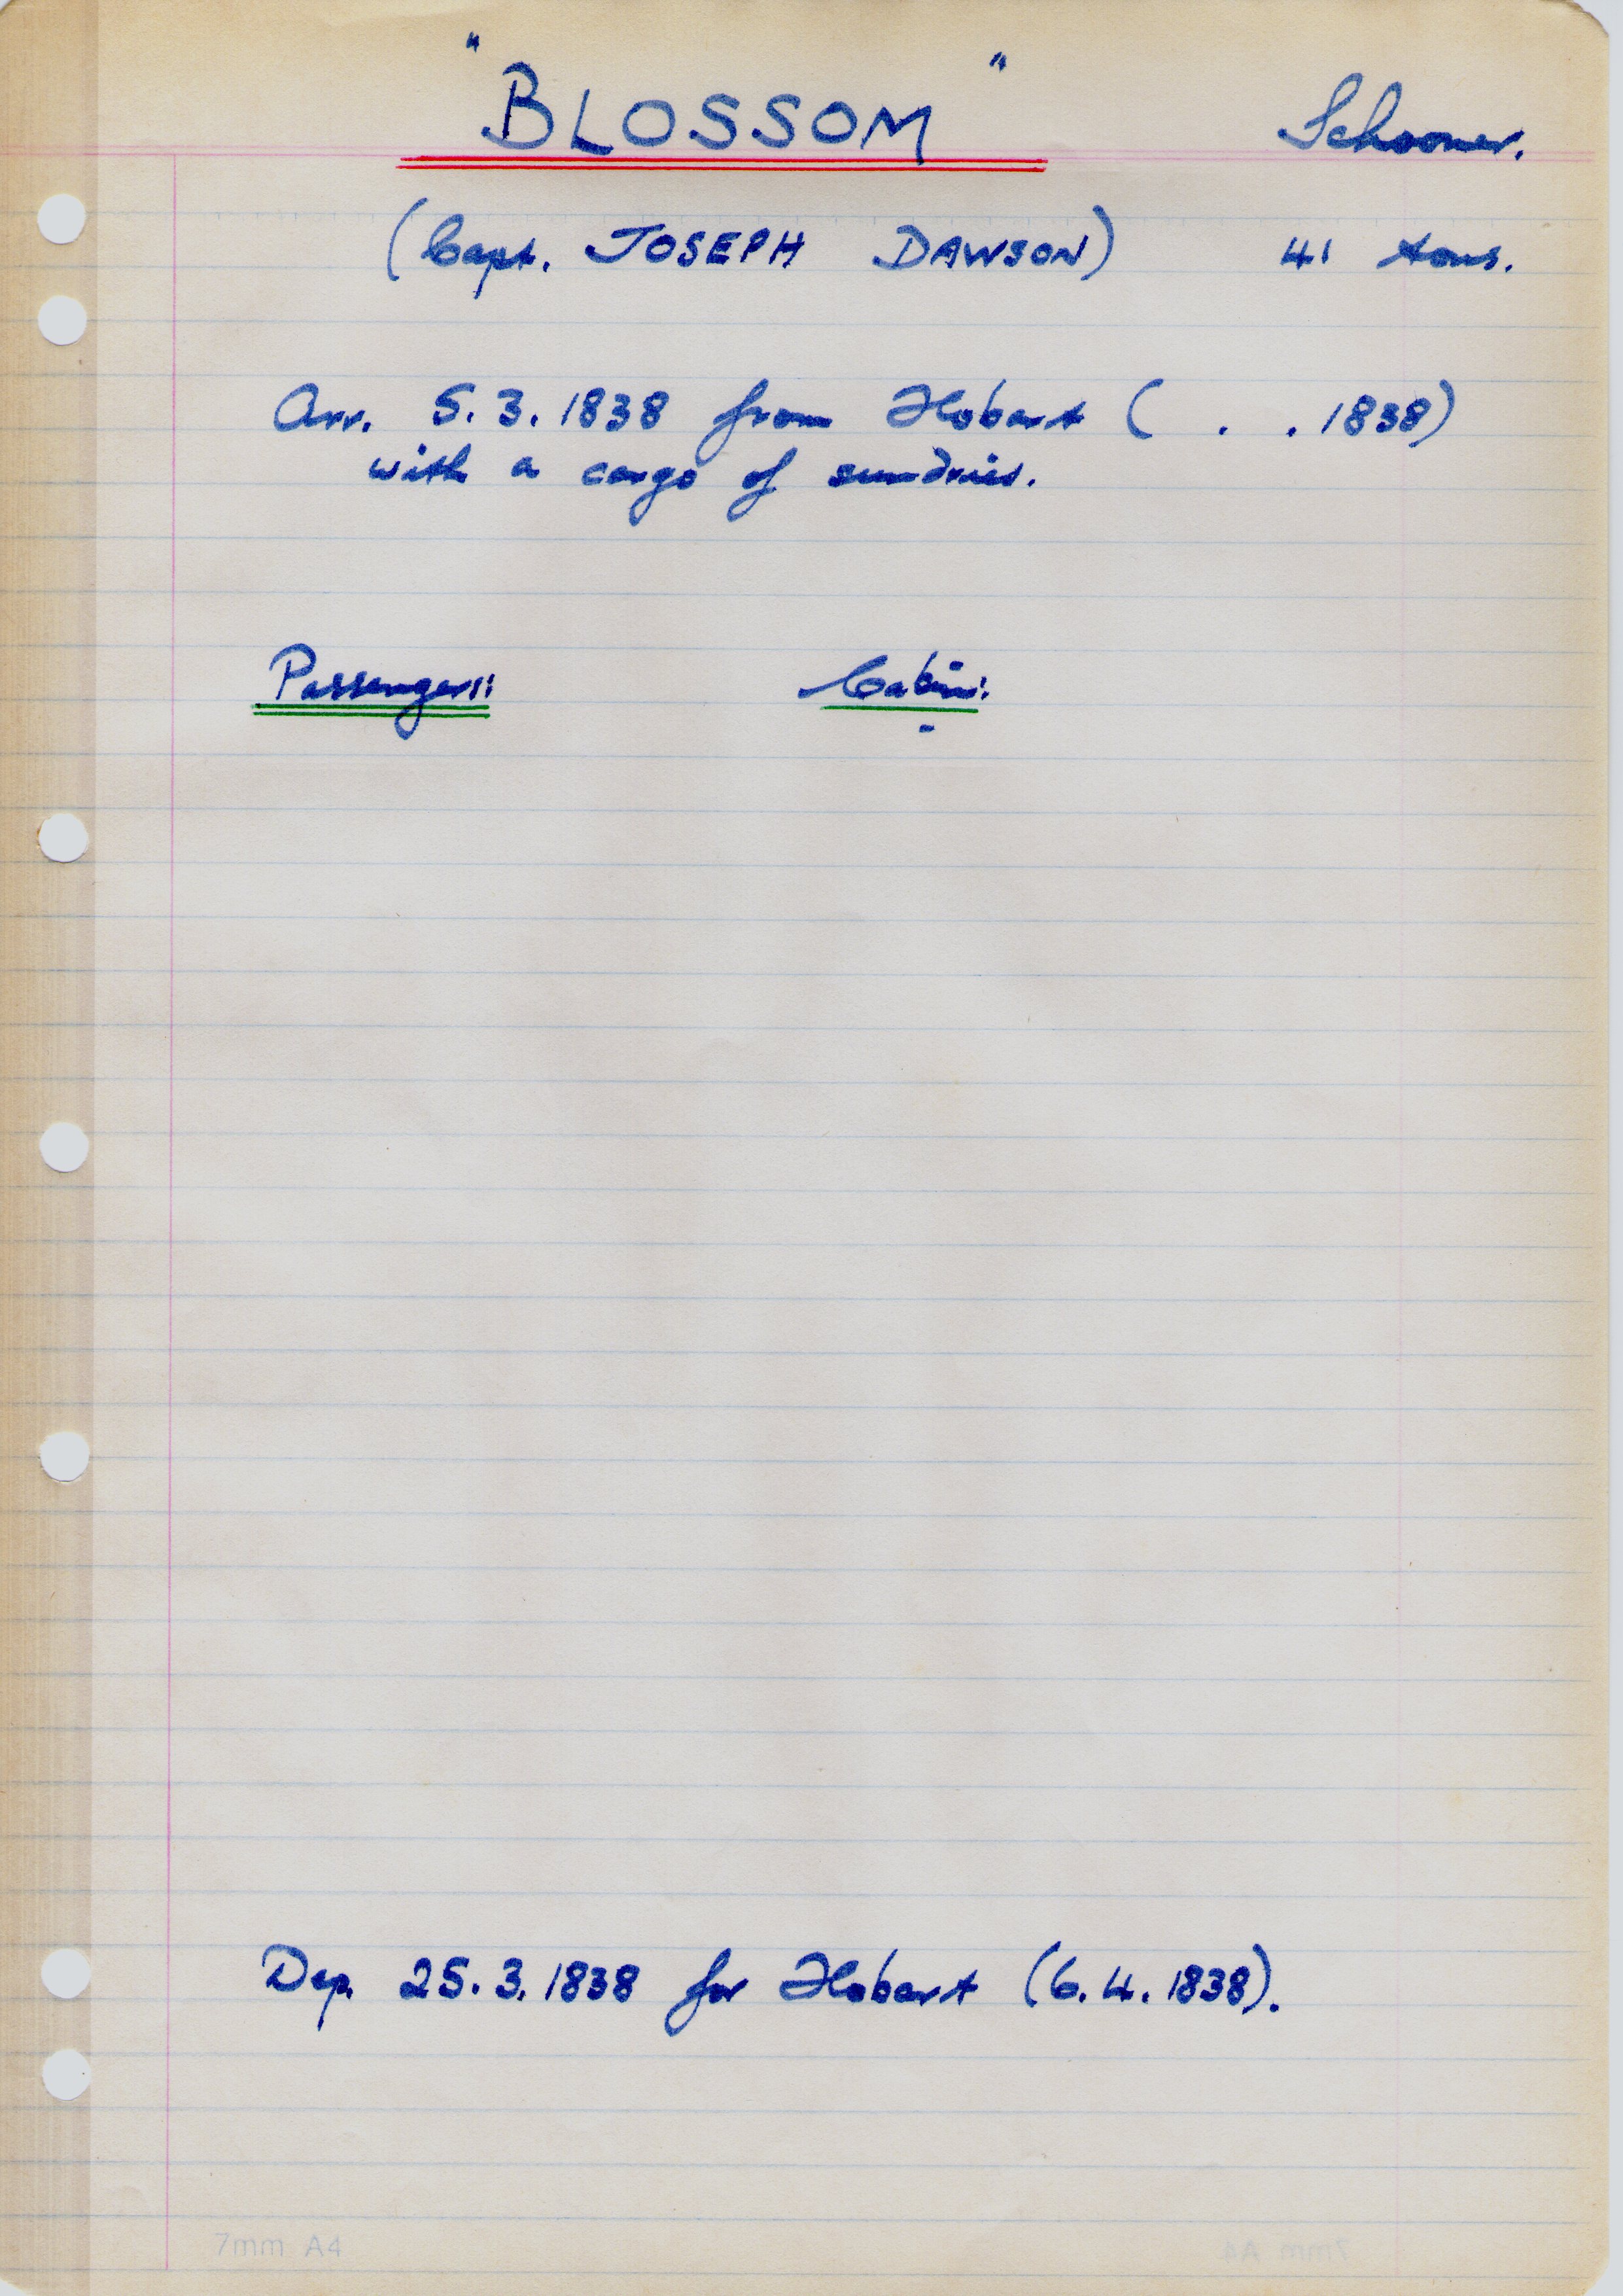 "BLOSSOM" Schooner.
(Capt. JOSEPH DAWSON) 41 tons.
Arr. 5.3.1838 from Hobart ( . . 1838)
with a cargo of sundries.
Passengers: Cabin:
-
Dep. 25.3.1838 for Hobart (6.4.1838).
7mm A4